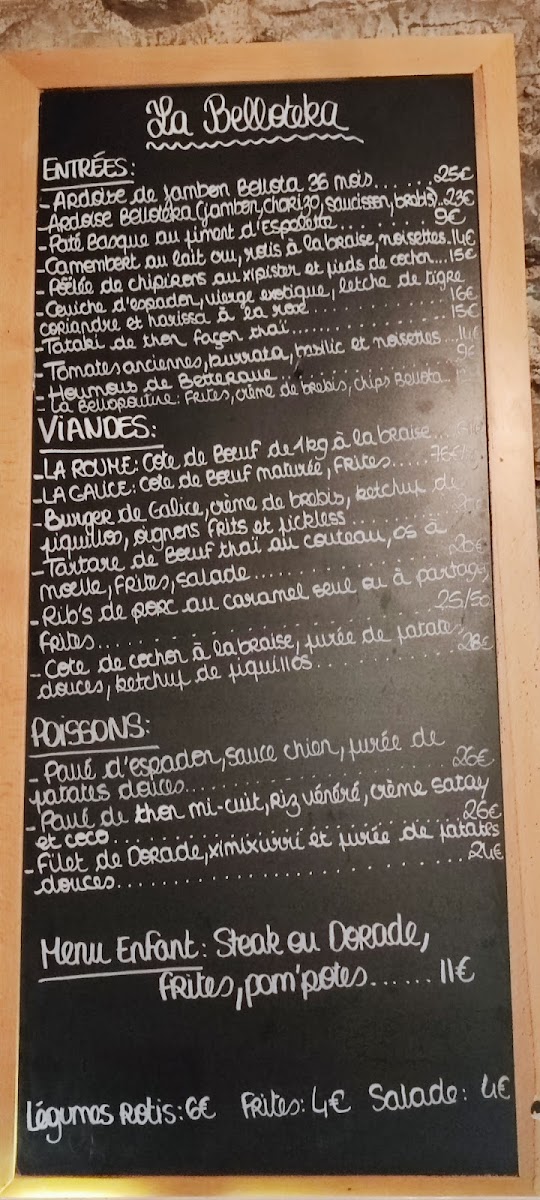 La Belloteka
ENTRÉES:
- Ardoise de Jambon Bellota 36 mois......25€
- Ardoise Bellotéka (jambon, chorizo, saucisson, brebis)..23€
- Paté Basque au piment d'Espelette.........9€
- Camembert au lait cru, rotis à la braise, noisettes..14€
- Pöêlée de chipirons au xipister et pieds de cochon...15€
- Ceviche d'espadon, vierge exotique, letche de tigre
coriandre et harissa à la rose................16€
- Tataki de thon façon thaï.................15€
- Tomates anciennes, burrata, basilic et noisettes...14€
- Houmous de Betterave..................9€
- La Bellopoutine: Frites, crème de brebis, chips Bellota..
VIANDES:
- LA ROUHE: Cote de Bœuf de 1kg à la braise...
- LA GALICE: Cote de Bœuf maturée, Frites......76€
- Burger de Galice, crème de brebis, ketchup de
piquillos, oignons frits et pickless...........
- Tartare de Bœuf thaï au couteau, os à
moelle, frites, salade....................20€
- Rib's de porc au caramel seul ou à partager,
frites..............................25/50
- Cote de cochon à la braise, purée de patates
douces, ketchup de piquillos..............28€
POISSONS:
- Pavé d'espadon, sauce chien, purée de
patates douces........................26€
- Pavé de thon mi-cuit, Riz vénéré, crème satay
et coco..............................26€
- Filet de Dorade, ximixurri et purée de patates
douces..............................24€
Menu Enfant: Steak ou Dorade,
Frites, pom'potes......11€
Légumes Rotis: 6€ Frites: 4€ Salade: 4€